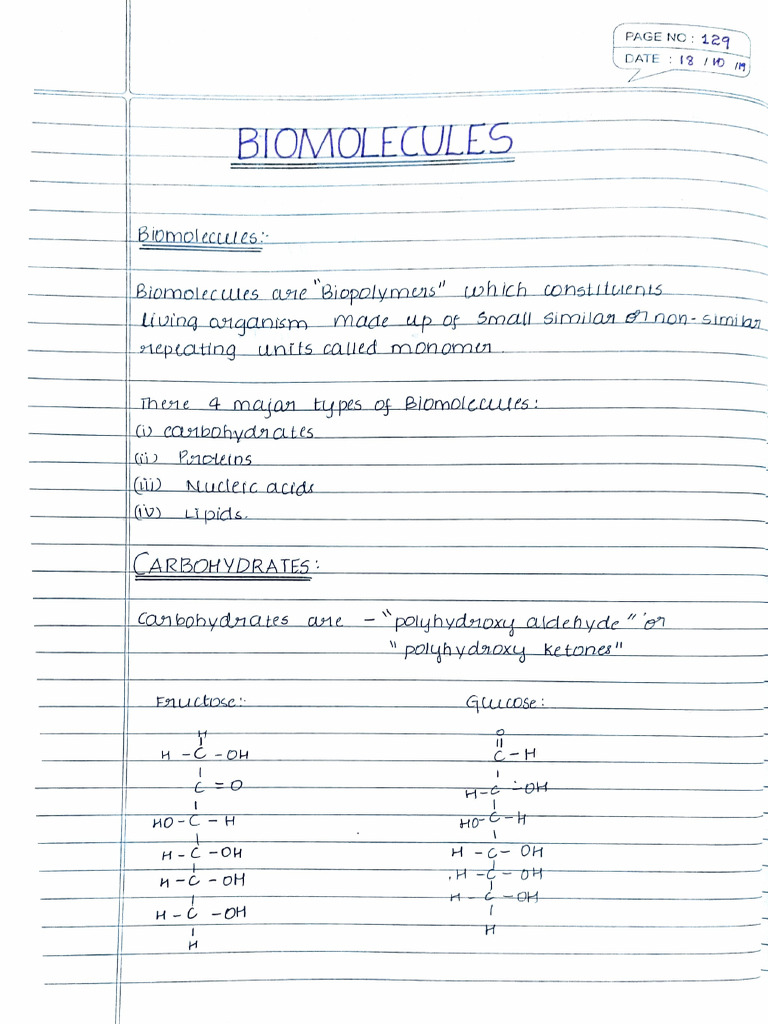 PAGE NO : 129
DATE : 18 / 10 / 19
BIOMOLECULES
Biomolecules:-
Biomolecules are "Biopolymers" which constituents
living organism made up of small similar or non-similar
repeating units called monomer.
There 4 major types of Biomolecules:
(i) carbohydrates
(ii) Proteins
(iii) Nucleic acids
(iv) Lipids.
CARBOHYDRATES:
Carbohydrates are - "polyhydroxy aldehyde" or
"polyhydroxy ketones"
Fructose:- Glucose:
H O
H - C - OH C - H
C = O H - C - OH
HO - C - H HO - C - H
H - C - OH H - C - OH
H - C - OH H - C - OH
H - C - OH H - C - OH
H H